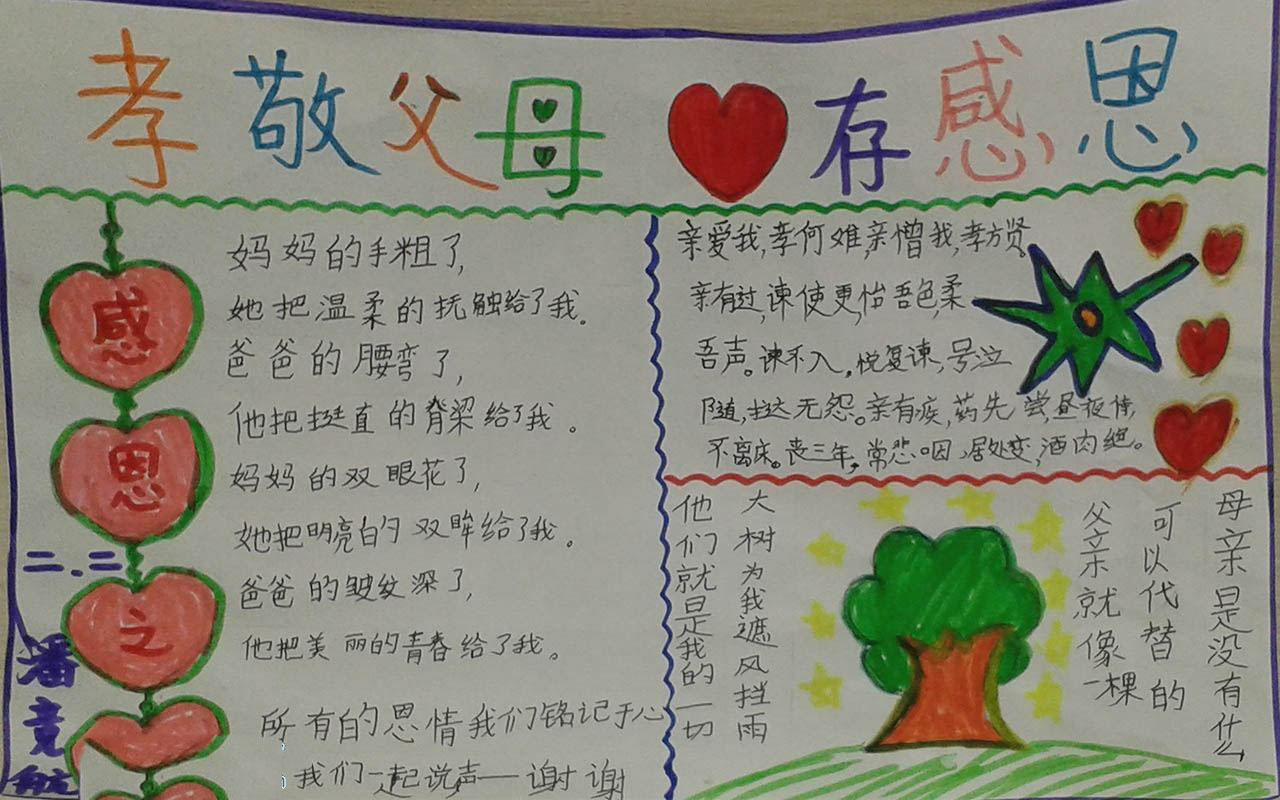 孝敬父母 存感恩
感
恩
之
二.二
潘竞航
妈妈的手粗了,
她把温柔的抚触给了我。
爸爸的腰弯了,
他把挺直的脊梁给了我。
妈妈的双眼花了,
她把明亮的双眸给了我。
爸爸的皱纹深了,
他把美丽的青春给了我。
所有的恩情我们铭记于心
我们一起说声——谢谢
亲爱我,孝何难,亲憎我,孝方贤。
亲有过,谏使更,怡吾色,柔
吾声。谏不入。悦复谏,号泣
随,挞无怨。亲有疾,药先尝,昼夜侍,
不离床。丧三年。常悲咽,居处变,酒肉绝。
母亲是没有什么
可以代替的
父亲就像一棵
大树为我遮风挡雨
他们就是我的一切